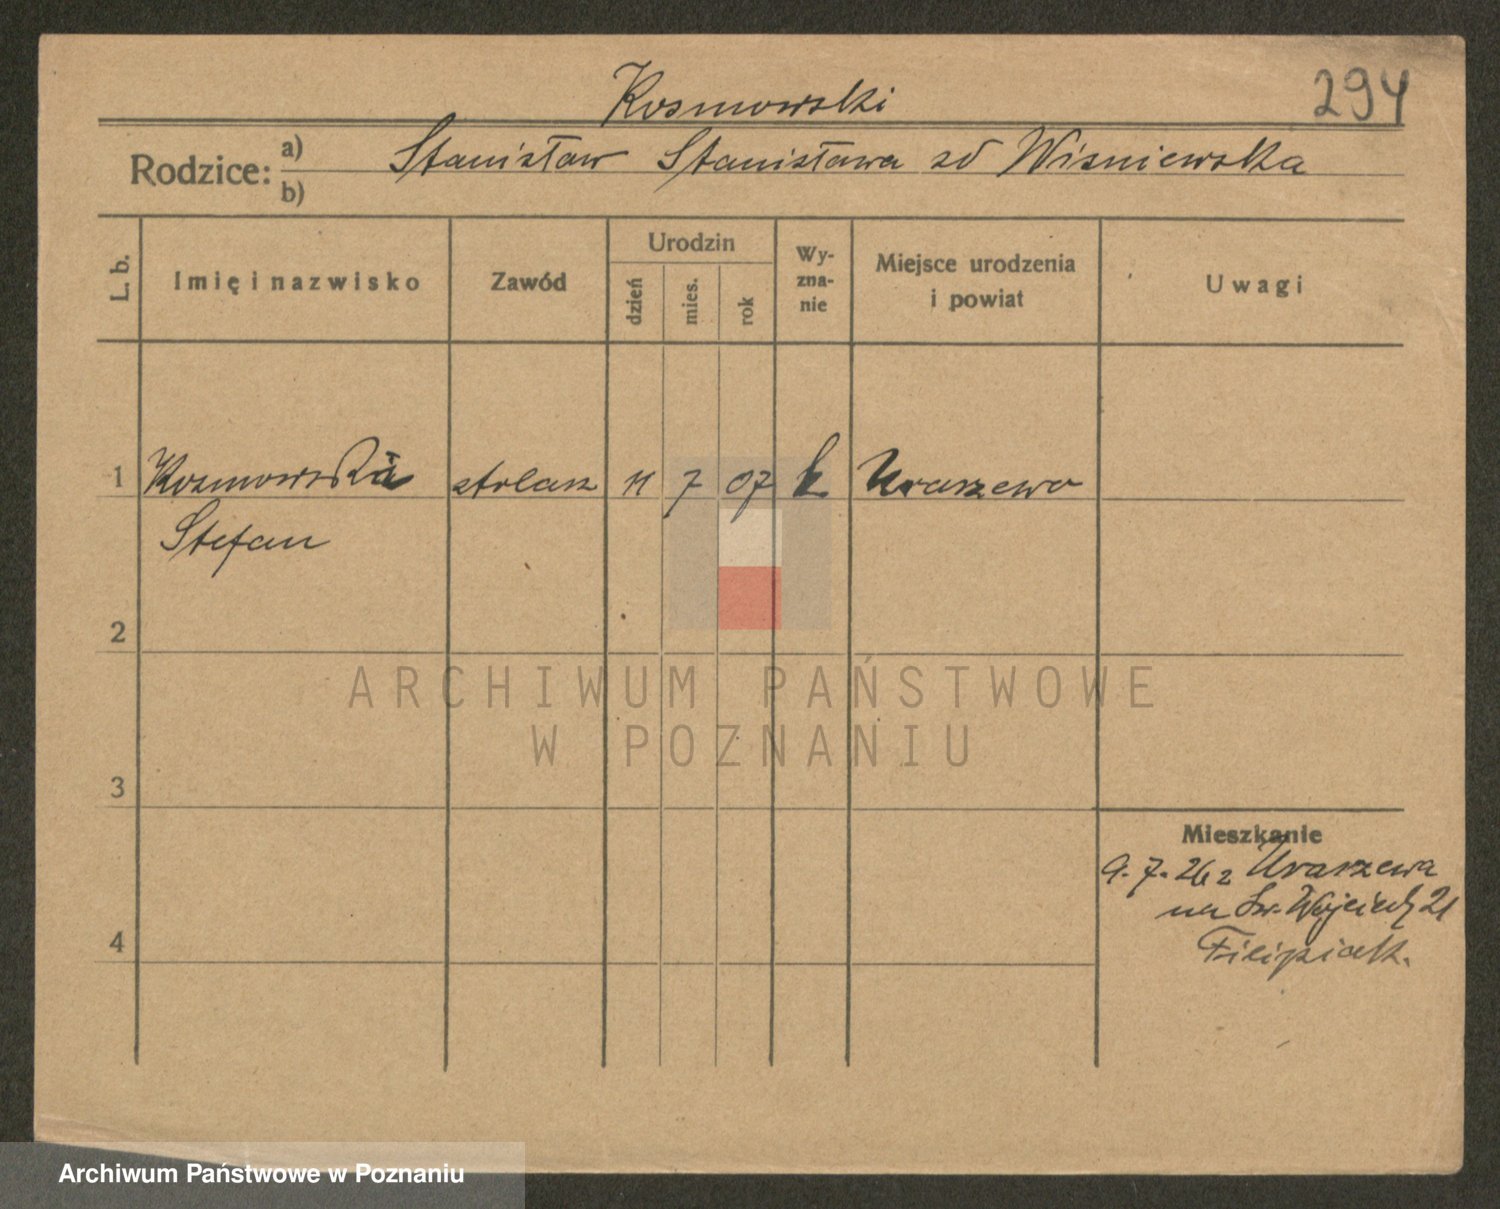 294
Kosmowski
Rodzice: a) b) Stanisław Stanisława zd Wiśniewska
L. b.
Imię i nazwisko
Zawód
Urodzin
dzień
mies.
rok
Wy-
zna-
nie
Miejsce urodzenia
i powiat
Uwagi
1 Kosmowski stolarz 11 7 07 k Uraszewo
Stefan
2
3
4
Mieszkanie
9. 7. 26 z Uraszewa
na Św. Wojciech 21
Filipiak.
ARCHIWUM PAŃSTWOWE
W POZNANIU
Archiwum Państwowe w Poznaniu